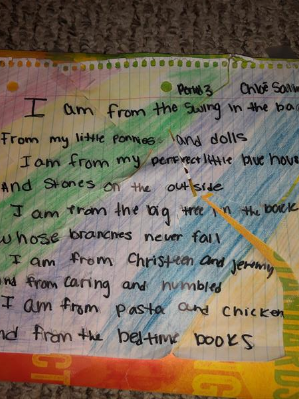 Period 3 Chloe
I am from the swing in the
From my little ponnies and dolls
I am from my perfrect little blue
And Stones on the outside
I am from the big tree in the back
whose branches never fall
I am from Christeen and Jeremy
and from caring and humbled
I am from pasta and chicken
and from the bedtime books